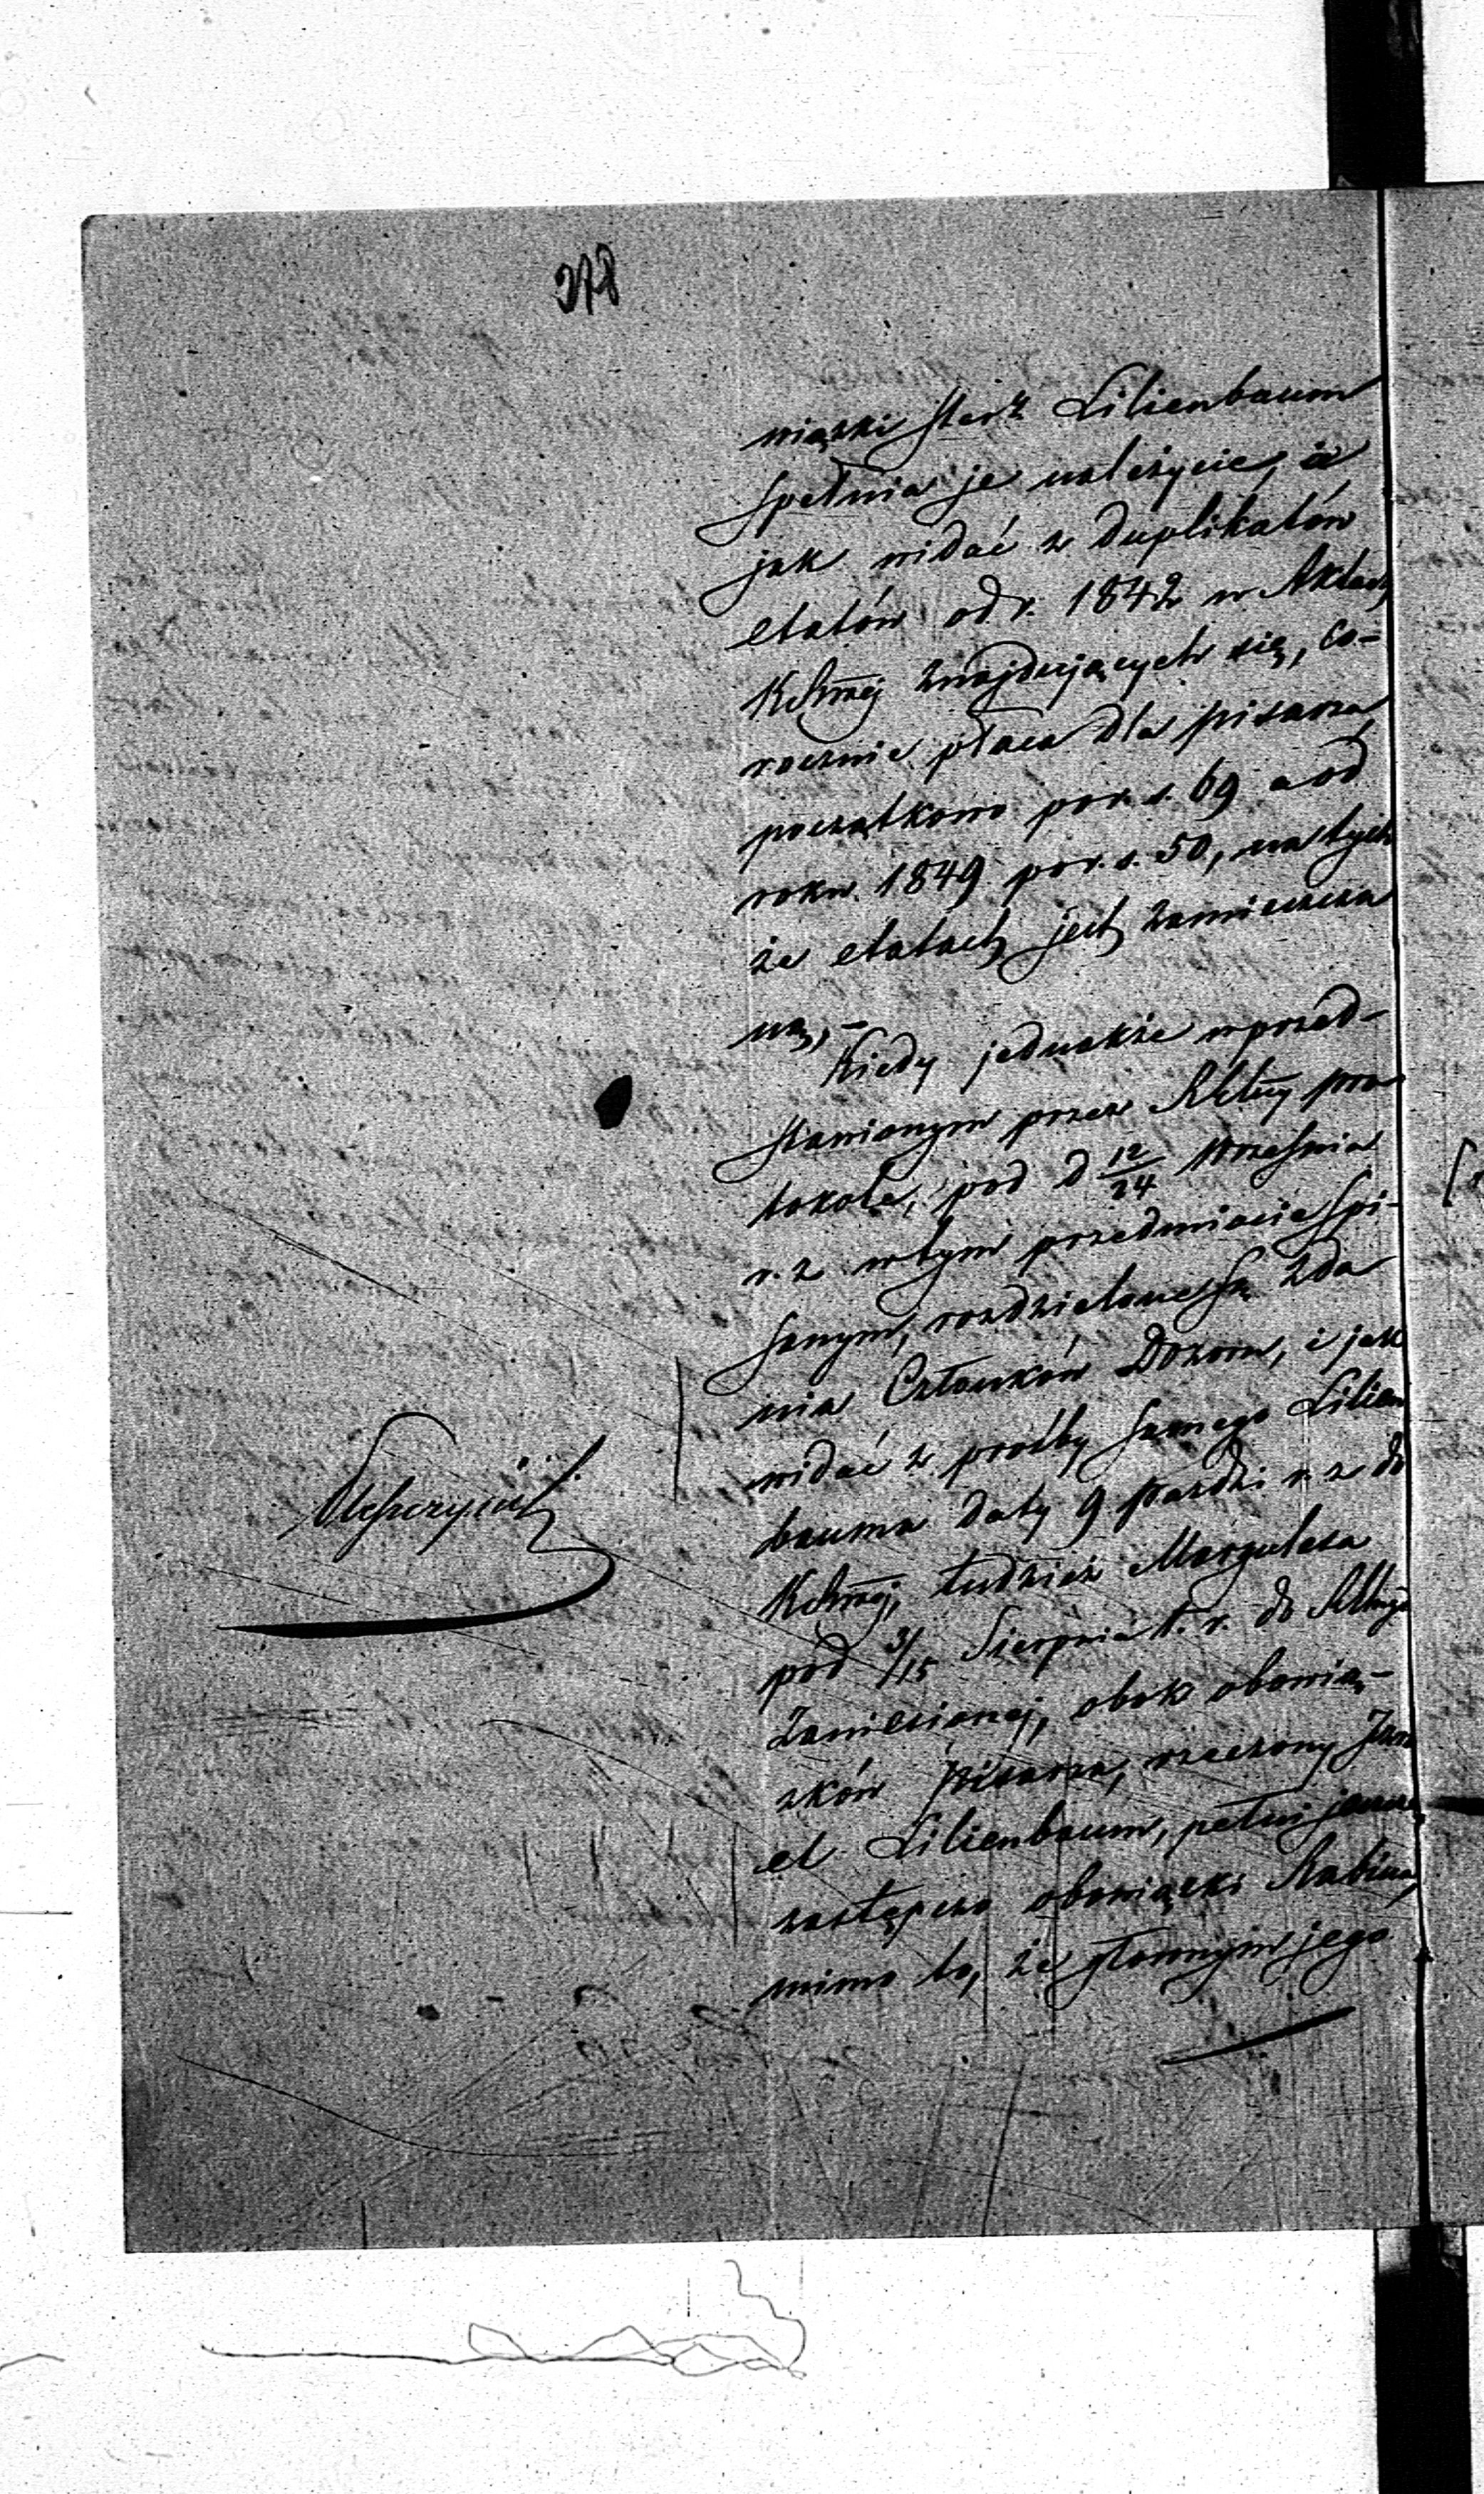 378
wiązki Starz Lilienbaum
spełnia je należycie, a
jak widać z duplikatów
etatów od r. 1842 w Aktach
znajdujących się, co-
rocznie płaca dla pisarza
początkowo po r. s. 69 a od
roku 1849 po r. s. 50, na tych
że etatach jest zamieszcza
ną, –
Kiedy jednakże w przed-
stawionym przez pro
tokole, pod d 12/24 Września
r. z w tym przedmiocie spi-
sanym, rozdzielone są zda
nia Członków Dozoru, i jak
widać z prośby samego Lilien
bauma daty 9 Paździ r. z do
tudzież Margulesa
pod 3/15 Sierpnia t. r. do
zaniesionej, obok obowią-
zków Pisarza, rzeczony Izra
el Lilienbaum, pełni jeszcze
zastępczo obowiązki Rabina,
mimo to, że głównym jego